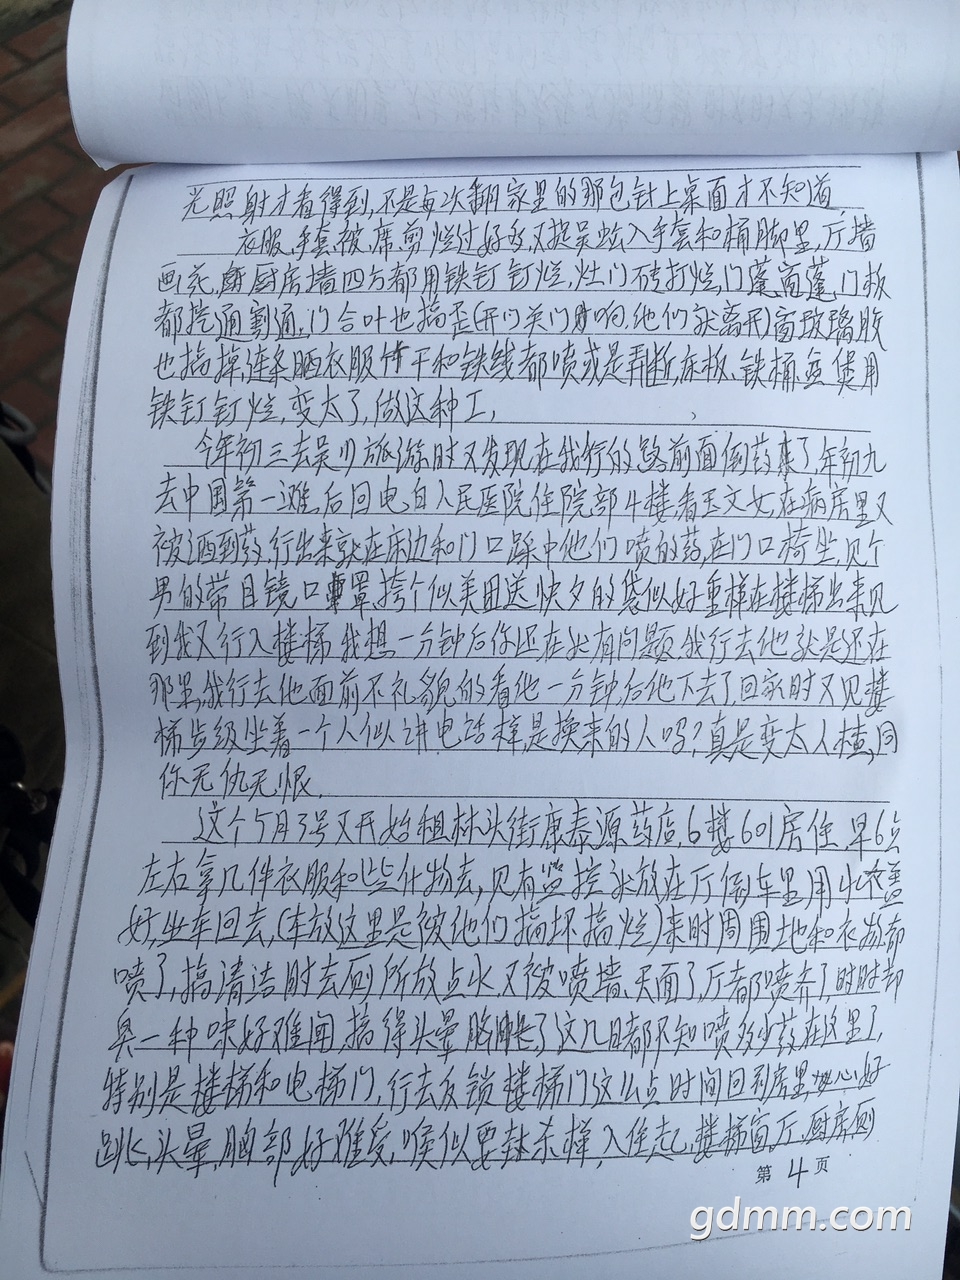 光照射才看得到,不是每次翻家里的那包针上桌面才不知道
衣服、手套被、席剪烂过好多,又捉吴蚣入手套和桶脚里,厅墙
画花,厨房墙四方都用铁钉钉烂,灶门砖打烂,门篷窗篷,门板
都挖通割通,门合叶也搞歪(开门关门响,他们就离开)窗玻璃胶
也搞掉,连条晒衣服竹干和铁线都喷或是弄断,床板、铁桶、煲用
铁钉钉烂,变太了,做这种工,
今年初三去吴川旅游时又发现在我行的路前面倒药来了,年初九
去中国第一滩,后回电白人民医院住院部4楼看王文女,在病房里又
被洒到药,行出来就在床边和门口踩中他们喷的药,在门口椅坐,见个
男的带目镜口罩,挎个似美团送快夕的袋似好重样在楼梯出来见
到我又行入楼梯,我想一分钟后你还在就有问题,我行去他就是还在
那里,我行去他面前不礼貌的看他一分钟,后他下去了,回家时又见楼
梯步级坐着一个人似讲电话样,是换来的人吗?真是变太人楂,同
你无仇无恨.
这个5月3号又开始租林头街康泰源药店,6楼601房住,早6点
左右拿几件衣服和些什物去,见有监控就放在厅倒车里用水衣盖
好,坐车回去,(车放这里是被他们搞坏搞烂)来时周围地和衣物都
喷了,搞清洁时去厕所放点水,又被喷墙、天面了,厅都喷齐了,时时都
臭一种味好难闻,搞得头晕脑胀了这几日都不知喷多少药在这里了,
特别是楼梯和电梯门,行去反锁楼梯门这么点时间回到房里心好
跳、头晕,胸部好难受,喉似要杀样,入住起,楼梯窗厅、厨房、厕
第4页
gdmm.com